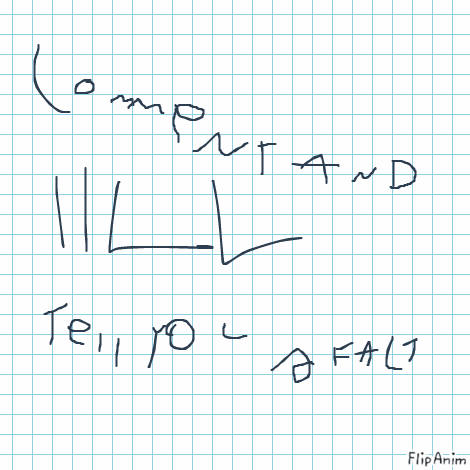 Compnt AND
I'll
Tell yoU a FACT
FlipAnim